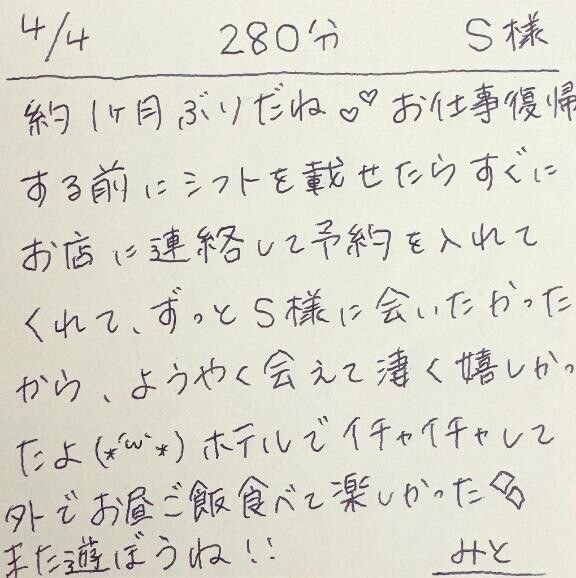 4/4 280分 S様
約1ヶ月ぶりだね♡♡ お仕事復帰
する前にシフトを載せたらすぐに
お店に連絡して予約を入れて
くれて、ずっとS様に会いたかった
から、ようやく会えて凄く嬉しかっ
たよ(*´ω`*) ホテルでイチャイチャして
外でお昼ご飯食べて楽しかった
また遊ぼうね!! みと